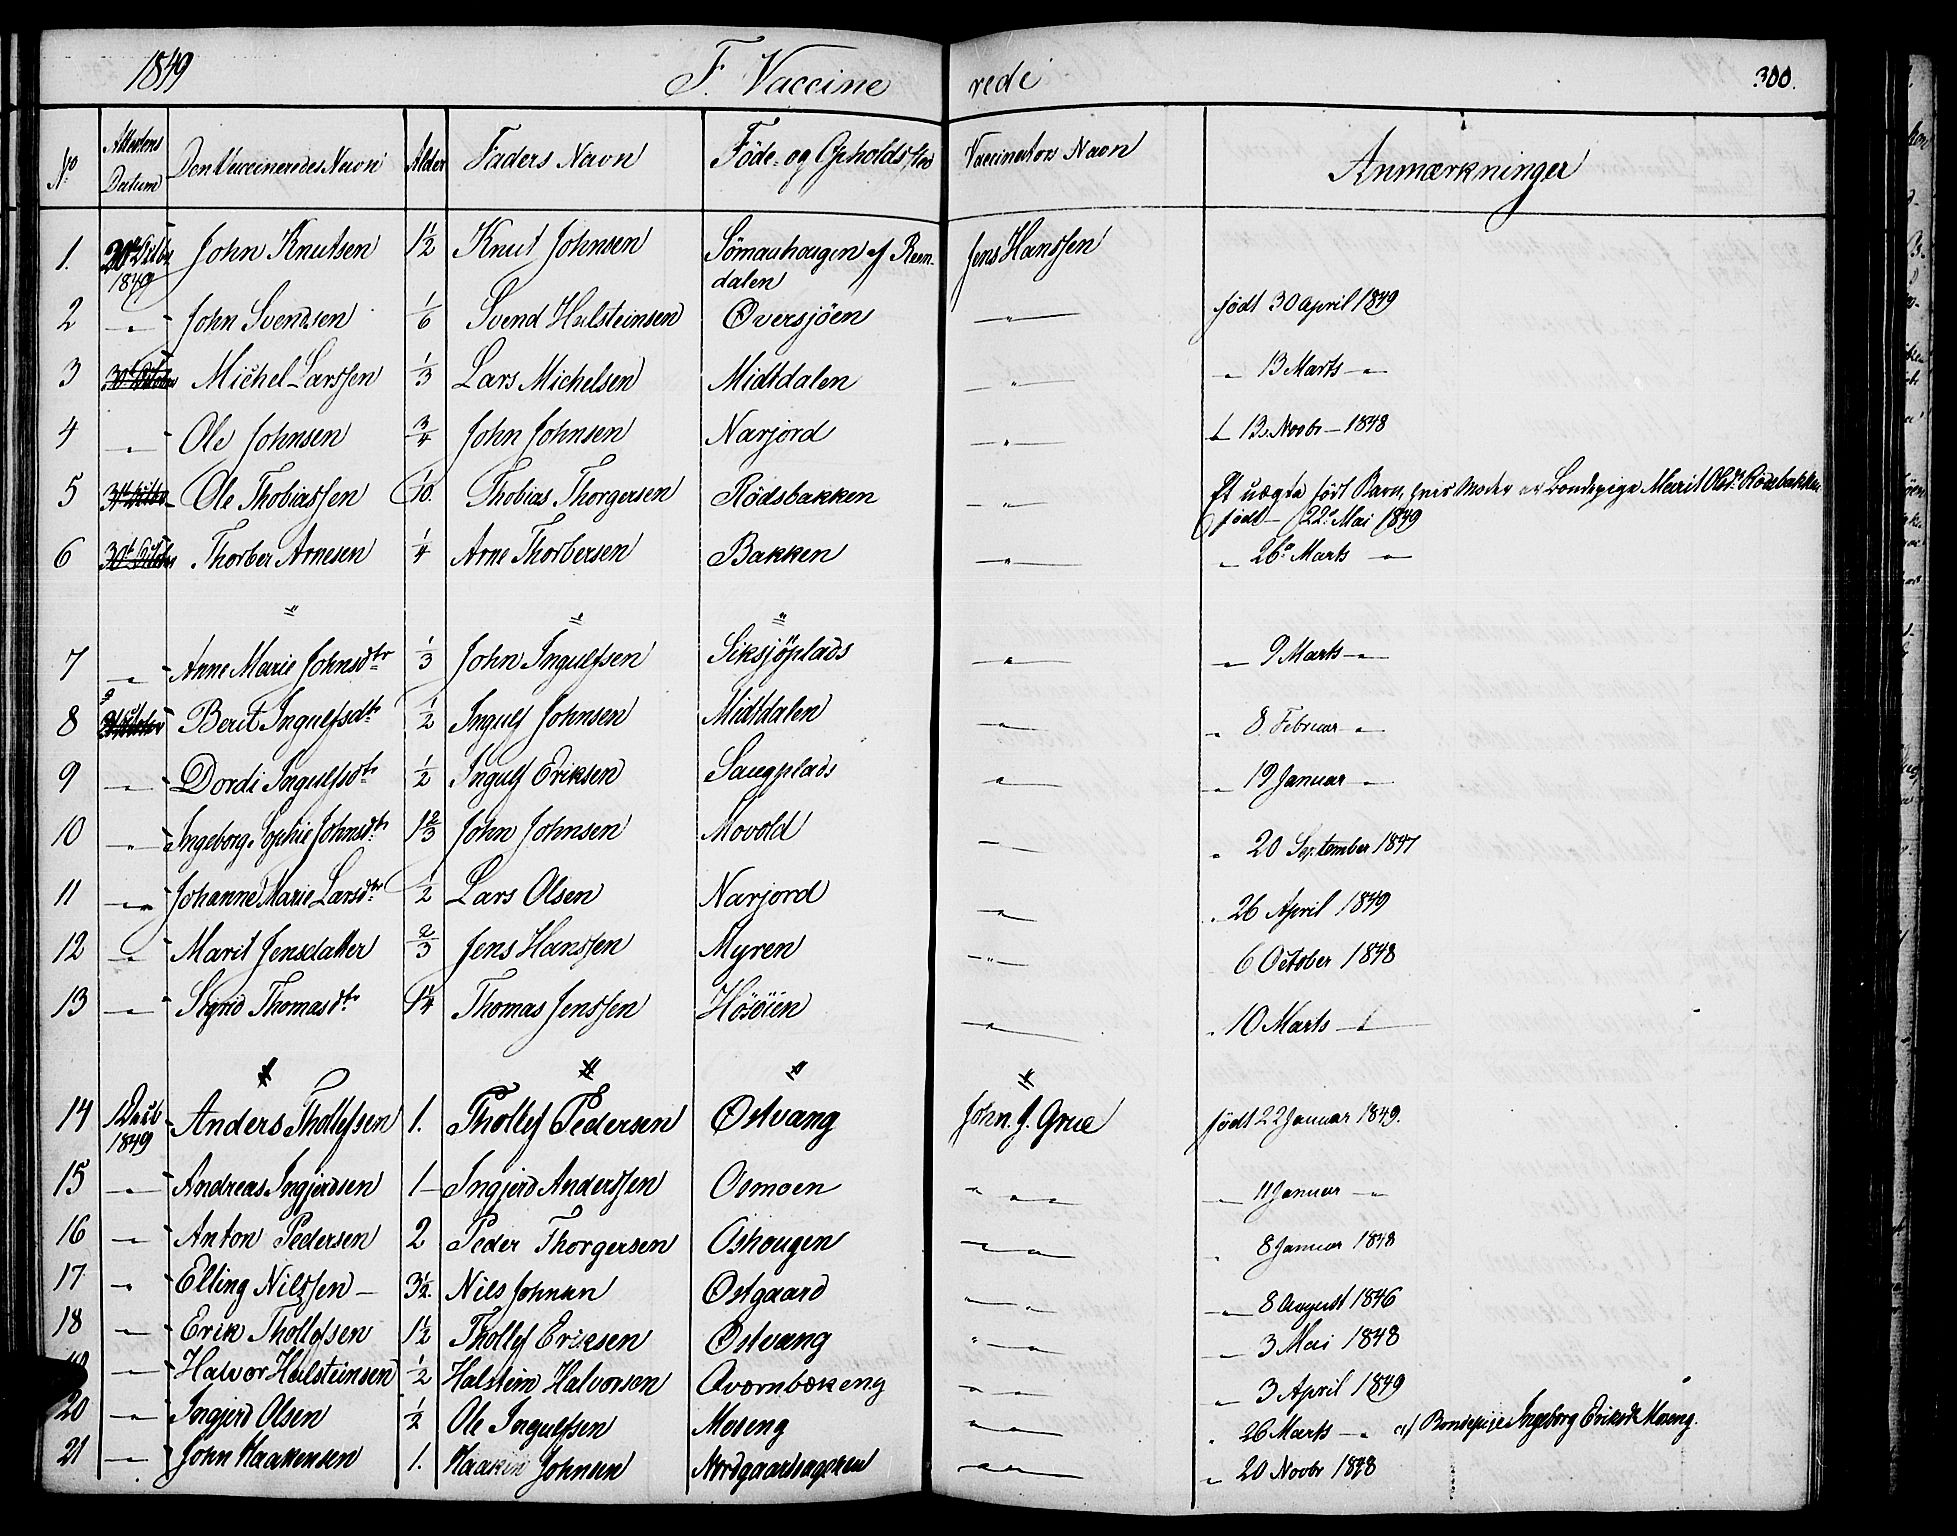 1849 F. Vaccinerede 300.
No Attestens Datum Den Vaccineredes Navn Alder Faders Navn Föde- og Opholdssted Vaccinators Navn Anmærkninger
1. 1849 John Knutsen 1½ Knut Johnsen Sömauhougen af Rem- Jens Hanssen
dalen
2 " John Svendsen 1/6 Svend Halsteinsen Oversjöen " födt 30 April 1849
3 Michel Larssen 1/3 Lars Michelsen Midtdalen " " 13 Marts "
4 " Ole Johnsen 3/4 John Johnsen Narjord " " 13 Novbr 1848
5 Ole Thobiassen 1/10. Thobias Thorgersen Rödsbakken " Et uægte födt Barn, hvis Moder er Bondepige Marit Olsdr Rödsbakken
födt 22 Mai 1849
6 Thorber Arnesen 1/4 Arne Thorbersen Bakken " " 26 Marts "
" " "
7 " Anne Marie Johnsdtr 1/3 John Ingulfsen Siksjöplads " " 9 Marts "
8 Berit Ingulfsdtr 1/2 Ingulf Johnsen Midtdalen " " 8 Februar "
9 " Dordi Ingulfsdtr 1/2 Ingulf Eriksen Saugplads " " 19 Januar "
10 " Ingeborg Sophie Johnsdtr 1 2/3 John Johnsen Movold " " 20 September 1847
11 " Johanne Marie Larsdtr 1/2 Lars Olsen Narjord " " 26 April 1849
12 " Marit Jensdatter 2/3 Jens Hanssen Myren " 6 October 1848
13 " Sigrid Thomasdtr 1¼ Thomas Jenssen Hösöien " " 10 Marts "
" " " "
14 1 1849 Anders Thollefsen 1. Thollef Pedersen Østvang John J. Grue födt 22 Januar 1849.
15 " Andreas Ingjerdsen 1 Ingjerd Anderssen Osmoen " " " 11 Januar "
16 " Anton Pedersen 2 Peder Thorgersen Oshougen " " " 8 Januar 1848
17 " Elling Nilssen 3½ Nils Johnsen Ostgaard " " " 8 August 1846
18 " Erik Thollefsen 1½ Thollef Eriksen Østvang " " " 3 Mai 1848
19 " Halvor Halsteinsen 1/2 Halstein Halvorsen Qværnbækeng " " " 3 April 1849
20 " Ingjerd Olsen 1/2 Ole Ingulfsen Moseng " " " 26 Marts " af Bondepige Ingeborg Eriksdr Moseng.
21 " John Haakensen 1. Haaken Johnsen " " " 20 Novbr 1848